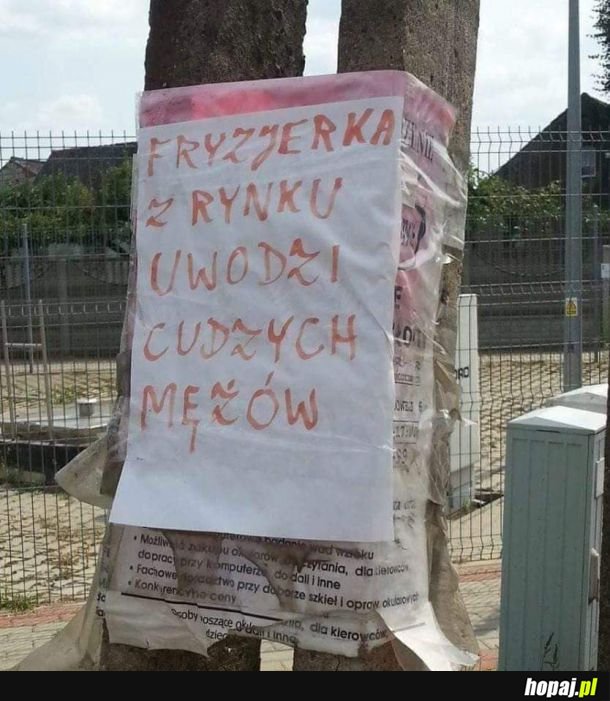 FRYZJERKA
Z RYNKU
UWODZI
CUDZYCH
MĘŻÓW
badanie wad wzroku
• Możliwość zakupu czytania, dla kierowców,
do pracy przy komputerze, do dali i inne
• Fachowe doradztwo przy doborze szkieł i opraw okularowych
• Konkurencyjne ceny
Osoby noszące dla kierowców,
do dali i inne
hopaj.pl